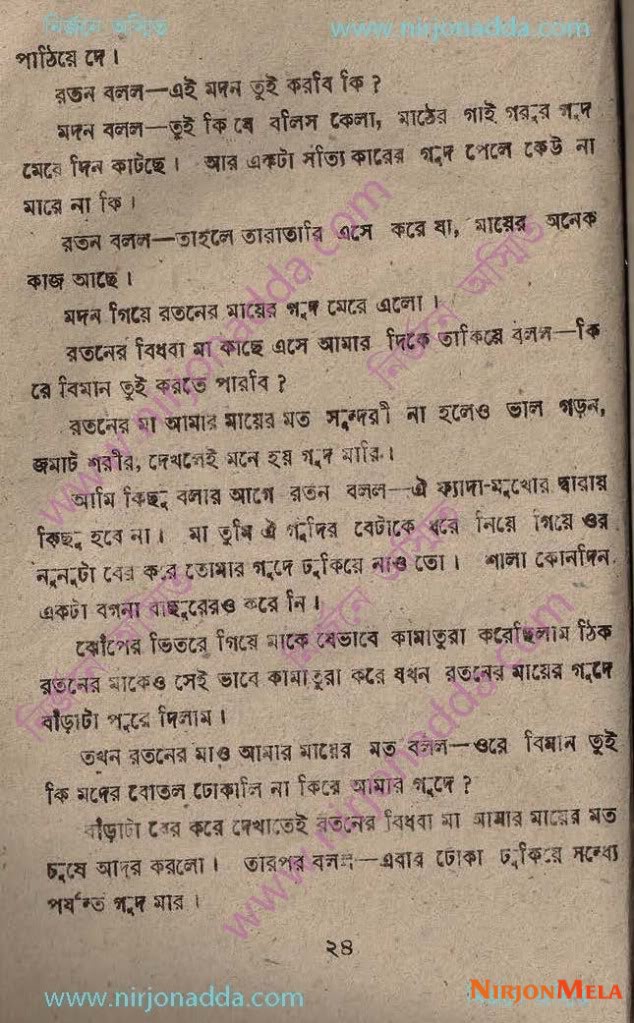 নির্জনে অস্মিত
www.nirjonadda.com
পাঠিয়ে দে।
রতন বলল—এই মদন তুই করবি কি ?
মদন বলল—তুই কি যে বলিস কেলা, মাঠের গাই গরুর গুদ
মেরে দিন কাটছে। আর একটা সত্যি কারের গুদ পেলে কেউ না
মারে না কি।
রতন বলল—তাহলে তারাতারি এসে করে যা, মায়ের অনেক
কাজ আছে।
মদন গিয়ে রতনের মায়ের গুদ মেরে এলো।
রতনের বিধবা মা কাছে এসে আমার দিকে তাকিয়ে বলল—কি
রে বিমান তুই করতে পারবি ?
রতনের মা আমার মায়ের মত সুন্দরী না হলেও ভাল গড়ন,
জমাট শরীর, দেখলেই মনে হয় গুদ মারি।
আমি কিছু বলার আগে রতন বলল—ঐ ক্যাদা-মুখোর দ্বারায়
কিছু হবে না। মা তুমি ঐ গুদির বেটাকে ধরে নিয়ে গিয়ে ওর
নুনুটা বের করে তোমার গুদে ঢুকিয়ে নাও তো। শালা কোনদিন
একটা বকনা বাছুরেরও করে নি।
ঝোঁপের ভিতরে গিয়ে মাকে যেভাবে কামাতুরা করেছিলাম ঠিক
রতনের মাকেও সেই ভাবে কামাতুরা করে যখন রতনের মায়ের গুদে
বাঁড়াটা পুরে দিলাম।
তখন রতনের মাও আমার মায়ের মত বলল—ওরে বিমান তুই
কি মদের বোতল ঢোকালি না কিরে আমার গুদে ?
বাঁড়াটা বের করে দেখাতেই রতনের বিধবা মা আমার মায়ের মত
চুষে আদর করলো। তারপর বলল—এবার ঢোকা ঢুকিয়ে সন্ধ্যে
পর্যন্ত গুদ মার।
২৪
www.nirjonadda.com
NIRJONMELA
নির্জনে অস্মিত
www.nirjonadda.com